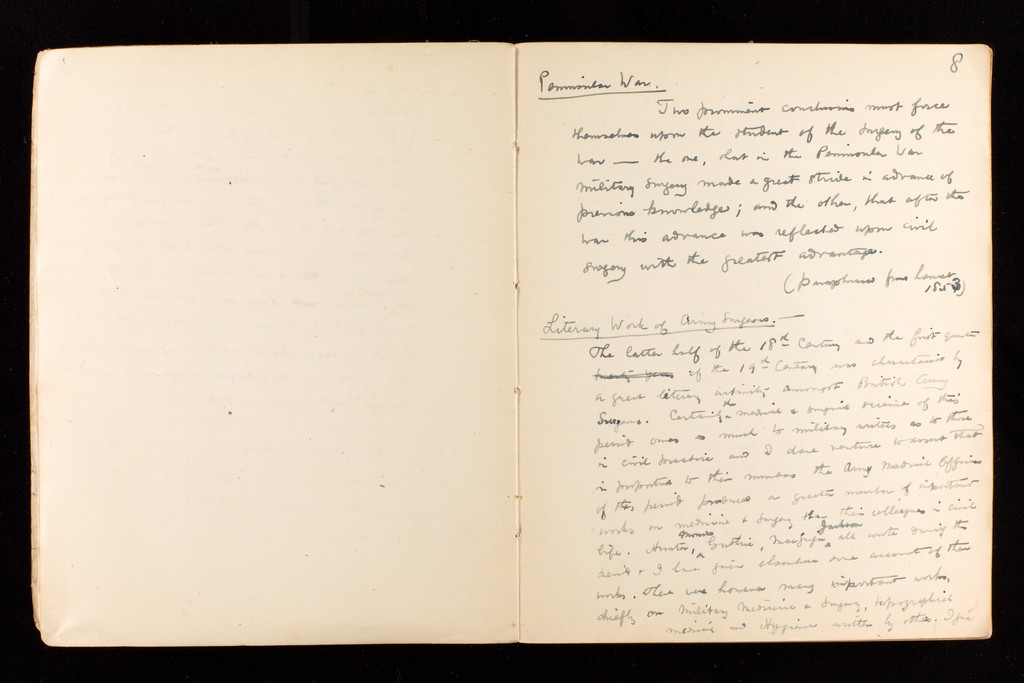 8
Peninsular War.
Two prominent conclusions must force
themselves upon the student of the Surgery of the
War — the one, that in the Peninsular War
Military Surgery made a great stride in advance of
previous knowledge; and the other, that after the
War this advance was reflected upon civil
Surgery with the greatest advantage.
(Paraphrased from Lancet
1853)
Literary Work of Army Surgeons. —
The latter half of the 18th Century and the first quarter
of the 19th Century was characterised by
a great literary activity amongst British Army
Surgeons. Certainly the medical & surgical science of this
period owes as much to military writers as to those
in civil practice and I dare venture to assert that
in proportion to their numbers the Army Medical Officers
of this period produced a greater number of important
works on medicine & surgery than their colleagues in civil
life. Hunter, Monro, Guthrie, Jackson all wrote during this
period & I have given elsewhere some account of their
works. There were however many important works,
chiefly on Military Medicine & Surgery, topographical
medicine and Hygiene written by others. I give